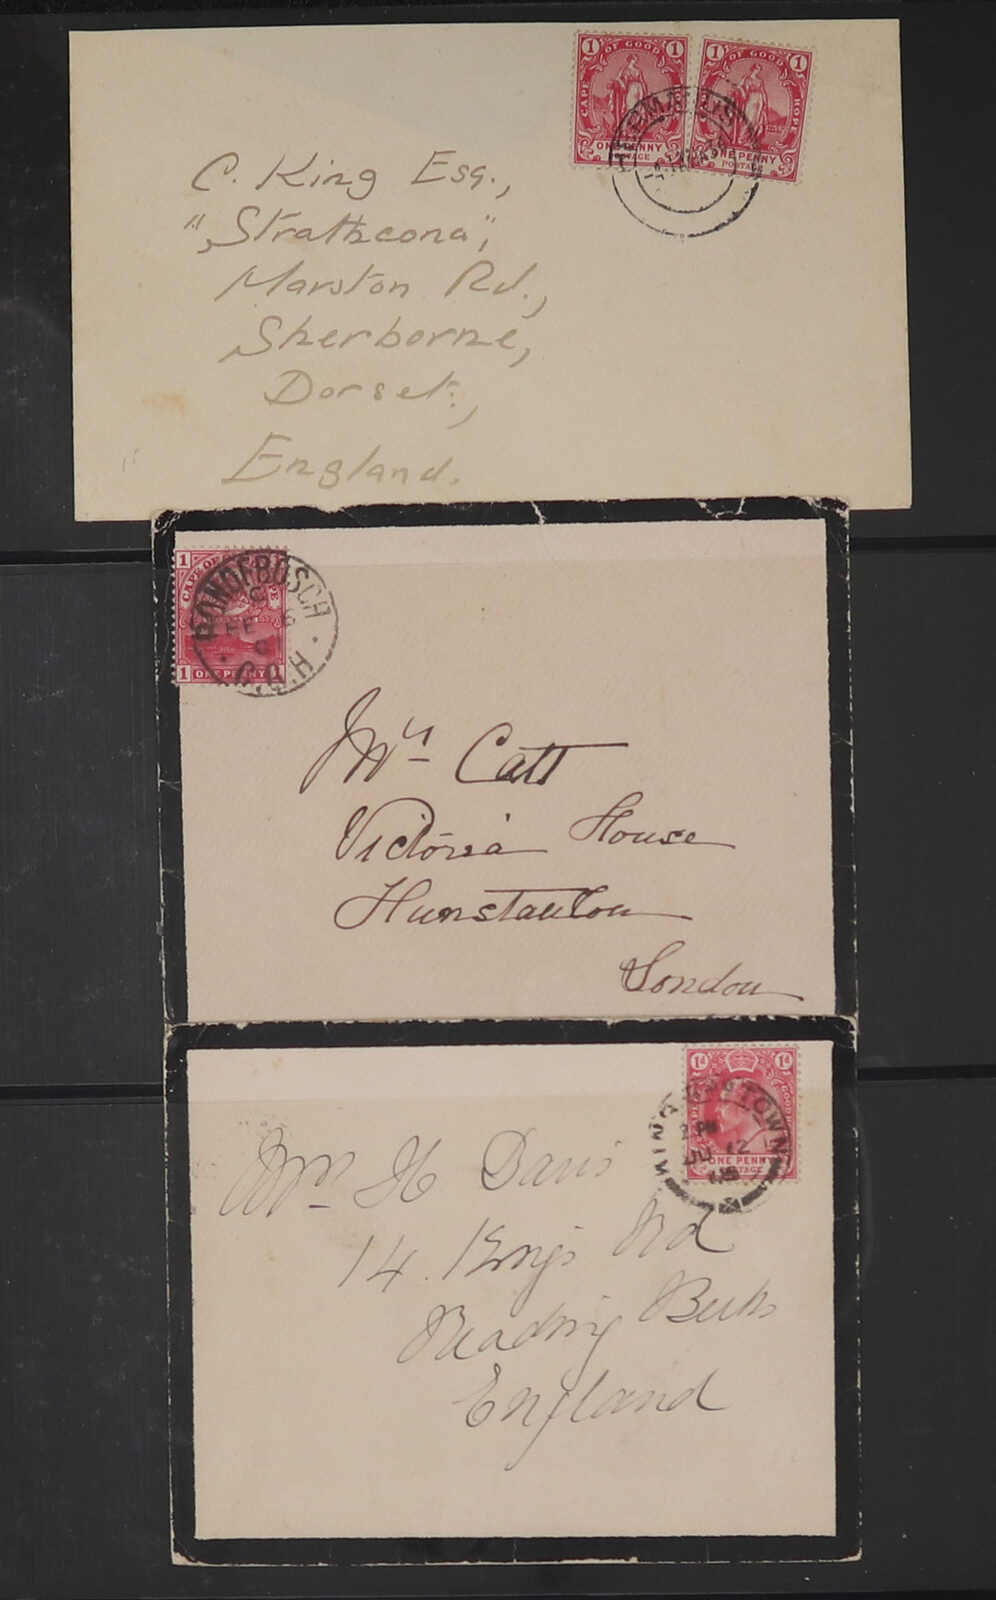 1 OF GOOD 1
CAPE
ONE PENNY
1 OF GOOD 1
HOPE
ONE PENNY
POSTAGE
C. King Esq.,
"Strathcona",
Marston Rd.,
Sherborne,
Dorset,
England.
1 CAPE OF
1 ONE PENNY 1
RONDEBOSCH
FE 6
C.G.H
Mrs Catt
Victoria House
Hunstanton
London
1d 1d
GOOD
ONE PENNY
POSTAGE
KING TOWN
JU 12
Mrs H Davis
14. Kings Rd
Reading Berks
England